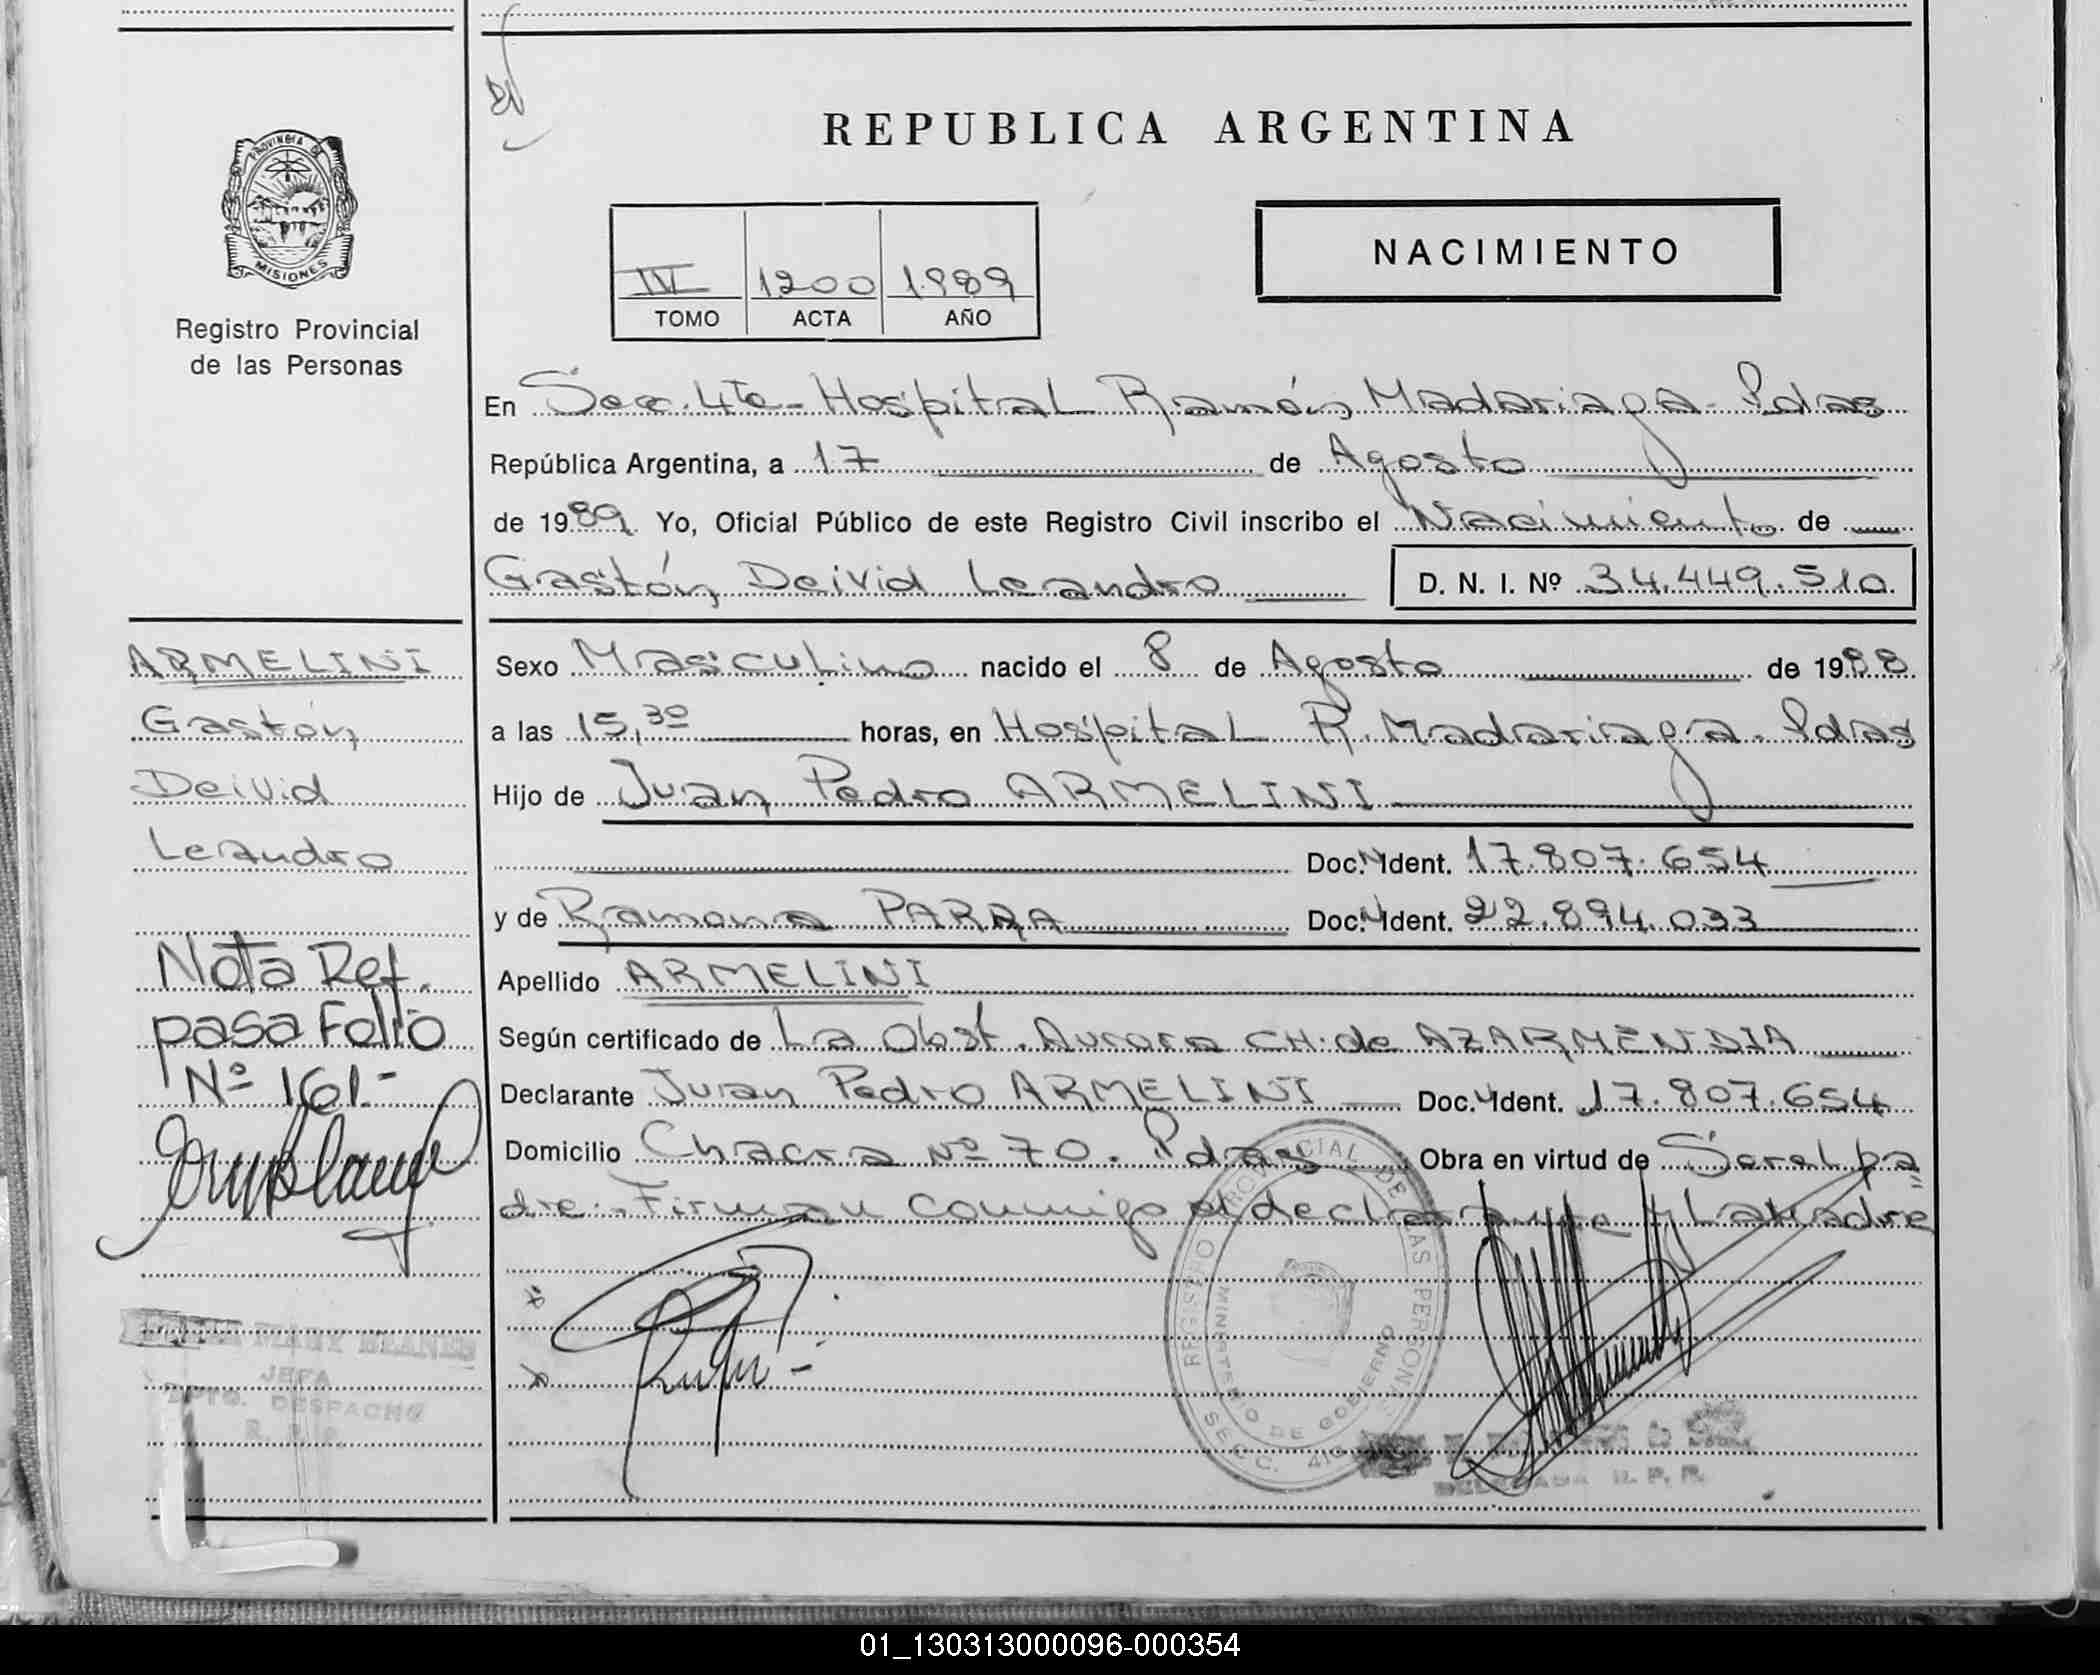 REPUBLICA ARGENTINA
PROVINCIA DE
MISIONES
Registro Provincial
de las Personas
NACIMIENTO
IV 1200 1989
TOMO ACTA AÑO
En Secc. 4ta - Hospital Ramón Madariaga - Pdas
República Argentina, a 17 de Agosto
de 1989 Yo, Oficial Público de este Registro Civil inscribo el Nacimiento de
Gastón Deivid Leandro D. N. I. Nº 34.449.510
ARMELINI
Gastón
Deivid
Leandro
Sexo Masculino nacido el 8 de Agosto de 1988
a las 15,30 horas, en Hospital R. Madariaga - Pdas
Hijo de Juan Pedro ARMELINI
Doc. N Ident. 17.807.654
y de Ramona PARRA Doc. N Ident. 22.894.033
Apellido ARMELINI
Según certificado de La Obst. Aurora CH. de AZARMENDIA
Declarante Juan Pedro ARMELINI Doc. N Ident. 17.807.654
Domicilio Chacra Nº 70. Pdas Obra en virtud de Ser el pa
dre - Firman conmigo el declarante y La Madre
Nota Ref.
pasa Folio
Nº 161.-
MARY BLANES
JEFA
DPTO. DESPACHO
REGISTRO PROVINCIAL DE LAS PERSONAS
MINISTERIO DE GOBIERNO
SECC.
DELEGADA R. P. P.
01_130313000096-000354